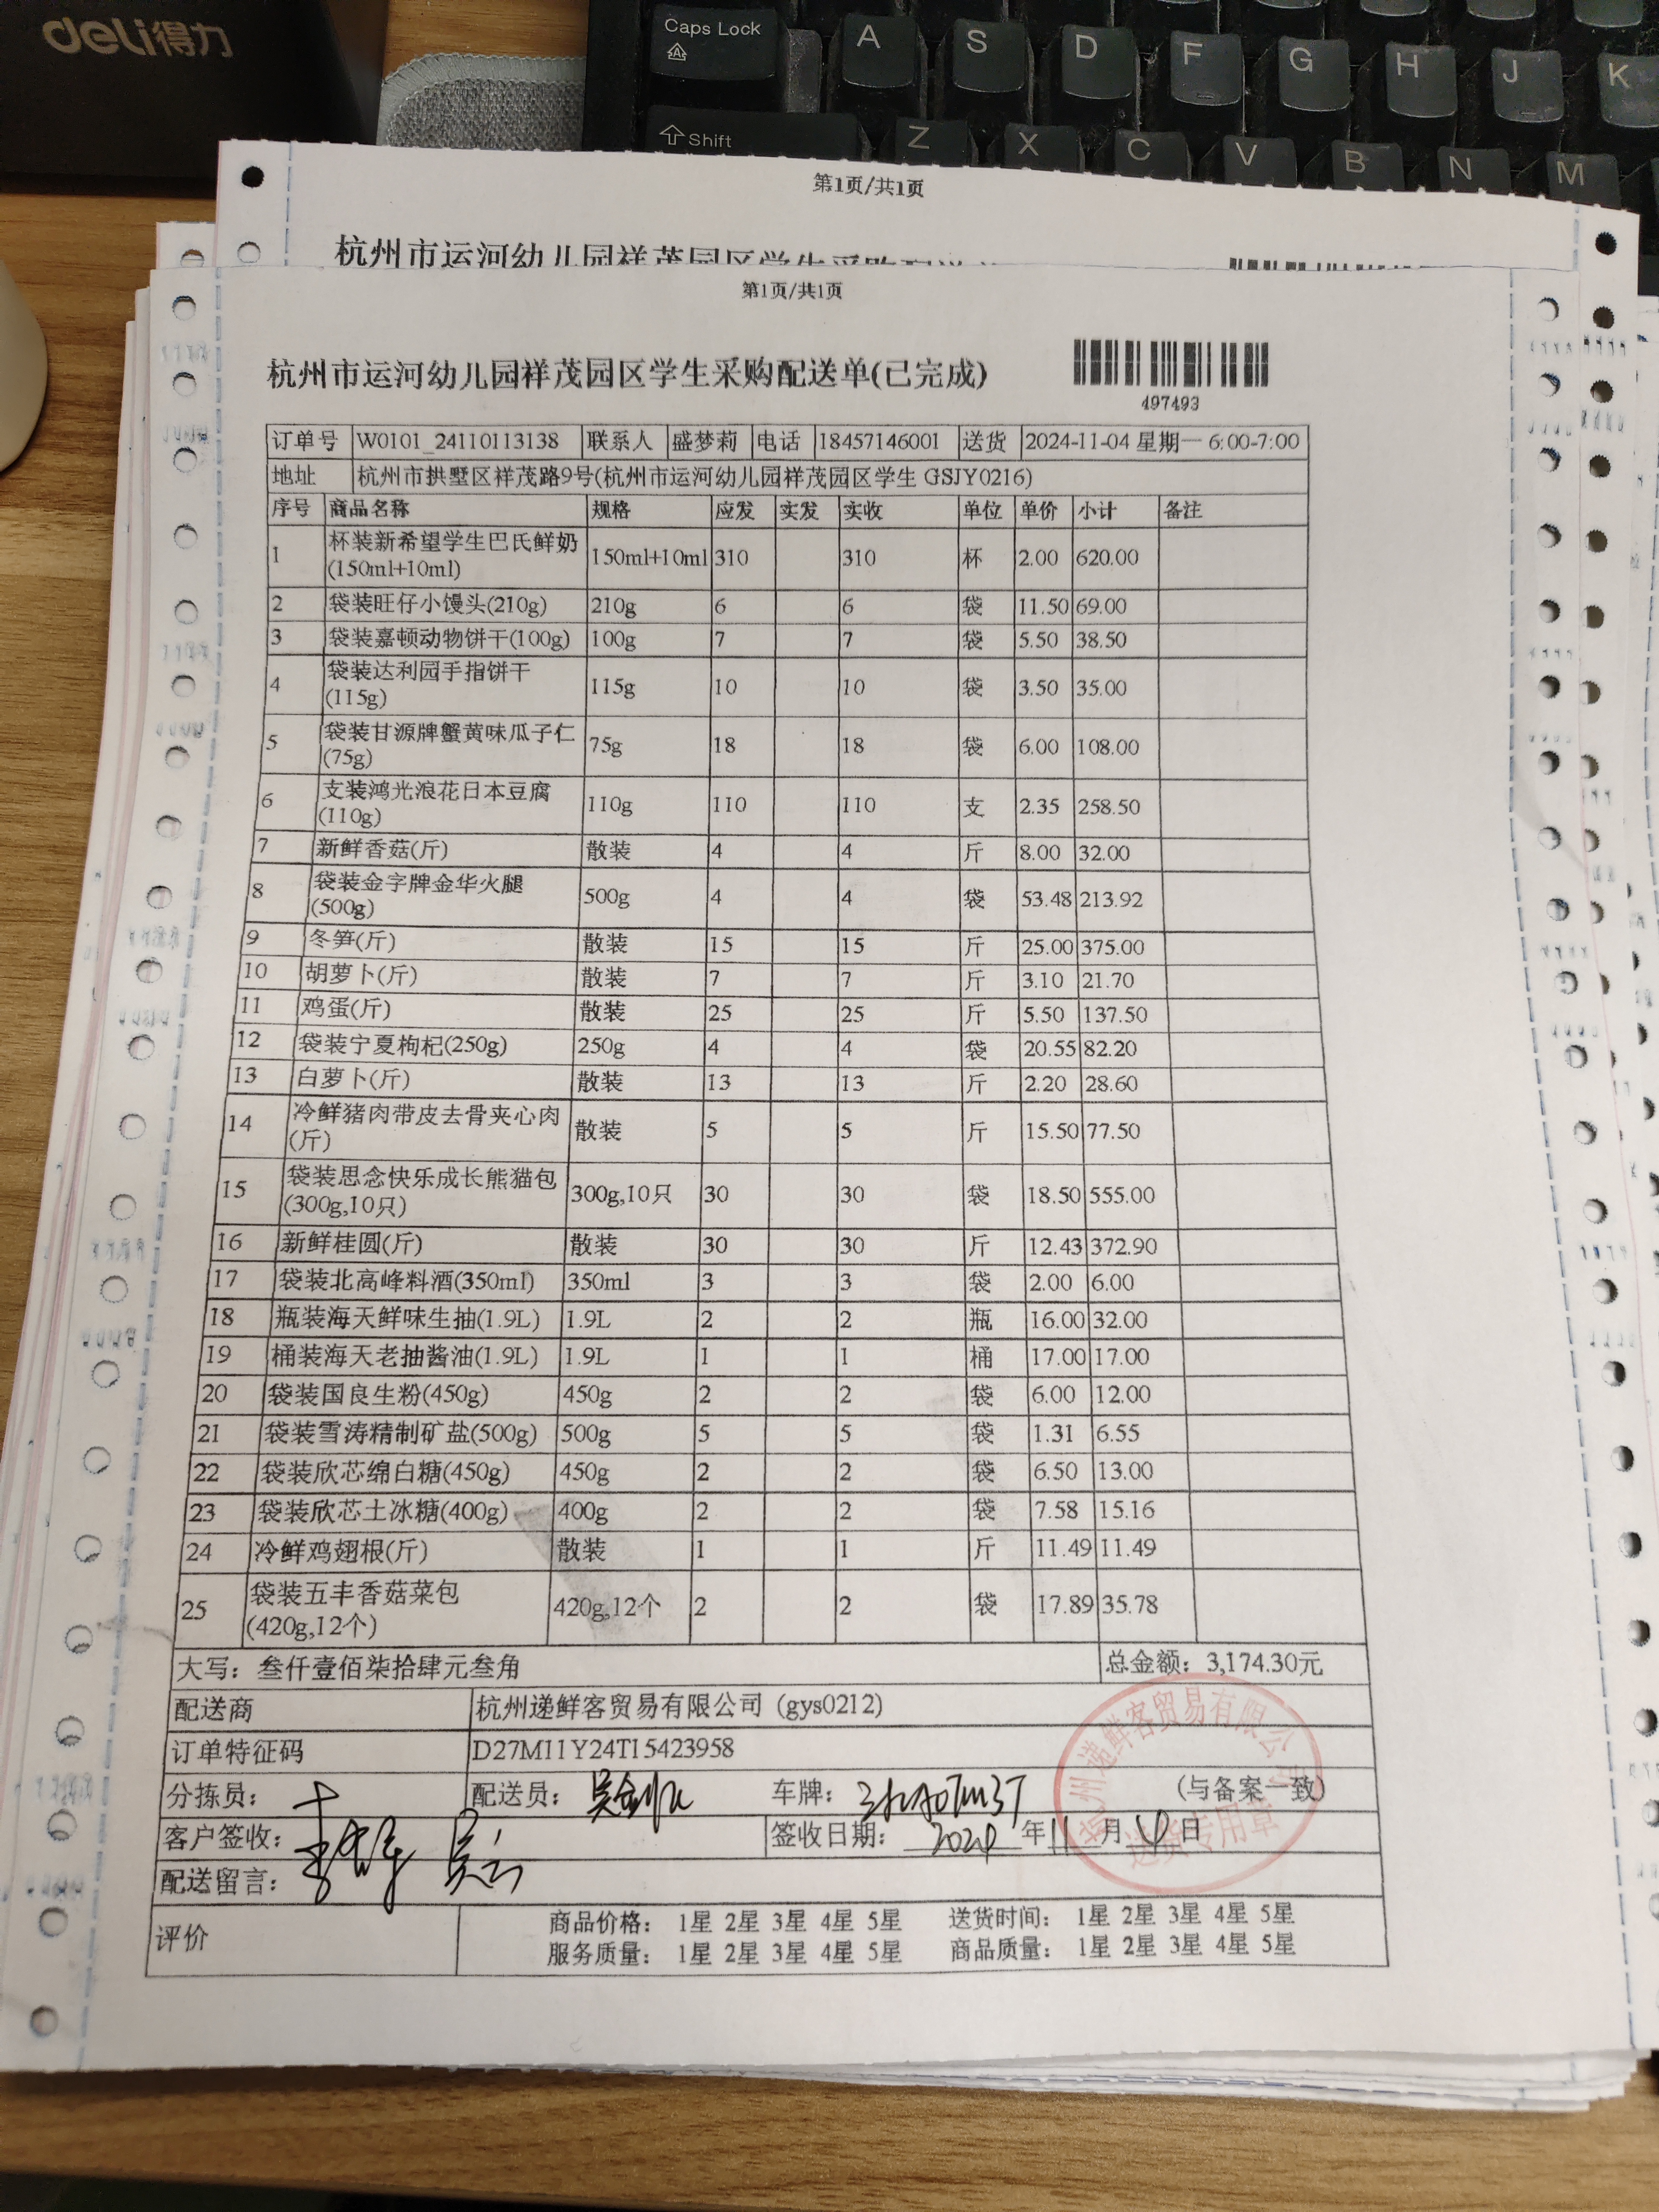 deli得力
Caps Lock A S D F G H J K
Shift Z X C V B N M
第1页/共1页
杭州市运河幼儿园祥茂园区学生采购配送单
第1页/共1页
杭州市运河幼儿园祥茂园区学生采购配送单(已完成)
497493
订单号 W0101_24110113138 联系人 盛梦莉 电话 18457146001 送货 2024-11-04 星期一 6:00-7:00
地址 杭州市拱墅区祥茂路9号(杭州市运河幼儿园祥茂园区学生 GSJY0216)
序号 商品名称 规格 应发 实发 实收 单位 单价 小计 备注
1 杯装新希望学生巴氏鲜奶(150ml+10ml) 150ml+10ml 310 310 杯 2.00 620.00
2 袋装旺仔小馒头(210g) 210g 6 6 袋 11.50 69.00
3 袋装嘉顿动物饼干(100g) 100g 7 7 袋 5.50 38.50
4 袋装达利园手指饼干(115g) 115g 10 10 袋 3.50 35.00
5 袋装甘源牌蟹黄味瓜子仁(75g) 75g 18 18 袋 6.00 108.00
6 支装鸿光浪花日本豆腐(110g) 110g 110 110 支 2.35 258.50
7 新鲜香菇(斤) 散装 4 4 斤 8.00 32.00
8 袋装金字牌金华火腿(500g) 500g 4 4 袋 53.48 213.92
9 冬笋(斤) 散装 15 15 斤 25.00 375.00
10 胡萝卜(斤) 散装 7 7 斤 3.10 21.70
11 鸡蛋(斤) 散装 25 25 斤 5.50 137.50
12 袋装宁夏枸杞(250g) 250g 4 4 袋 20.55 82.20
13 白萝卜(斤) 散装 13 13 斤 2.20 28.60
14 冷鲜猪肉带皮去骨夹心肉(斤) 散装 5 5 斤 15.50 77.50
15 袋装思念快乐成长熊猫包(300g,10只) 300g,10只 30 30 袋 18.50 555.00
16 新鲜桂圆(斤) 散装 30 30 斤 12.43 372.90
17 袋装北高峰料酒(350ml) 350ml 3 3 袋 2.00 6.00
18 瓶装海天鲜味生抽(1.9L) 1.9L 2 2 瓶 16.00 32.00
19 桶装海天老抽酱油(1.9L) 1.9L 1 1 桶 17.00 17.00
20 袋装国良生粉(450g) 450g 2 2 袋 6.00 12.00
21 袋装雪涛精制矿盐(500g) 500g 5 5 袋 1.31 6.55
22 袋装欣芯绵白糖(450g) 450g 2 2 袋 6.50 13.00
23 袋装欣芯土冰糖(400g) 400g 2 2 袋 7.58 15.16
24 冷鲜鸡翅根(斤) 散装 1 1 斤 11.49 11.49
25 袋装五丰香菇菜包(420g,12个) 420g,12个 2 2 袋 17.89 35.78
大写：叁仟壹佰柒拾肆元叁角 总金额：3,174.30元
配送商 杭州递鲜客贸易有限公司 (gys0212)
订单特征码 D27M11Y24T15423958
分拣员： 配送员： 车牌： (与备案一致)
客户签收： 签收日期： 2024 年 11 月 日
配送留言：
评价 商品价格： 1星 2星 3星 4星 5星 送货时间： 1星 2星 3星 4星 5星
服务质量： 1星 2星 3星 4星 5星 商品质量： 1星 2星 3星 4星 5星
杭州递鲜客贸易有限公司
送货专用章